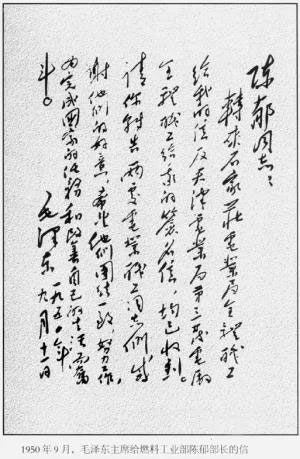 陈郁同志：
转来石家庄电业局全体职工
给我的信及天津电业局第三发电厂
全体职工给我的签名信，均已收到。
请你转告两处电业职工同志们，感
谢他们的好意，希望他们团结一致，努力工作，
为完成国家的任务和改善自己的生活而奋
斗。
毛泽东
一九五〇年
九月十一日
1950年9月，毛泽东主席给燃料工业部陈郁部长的信